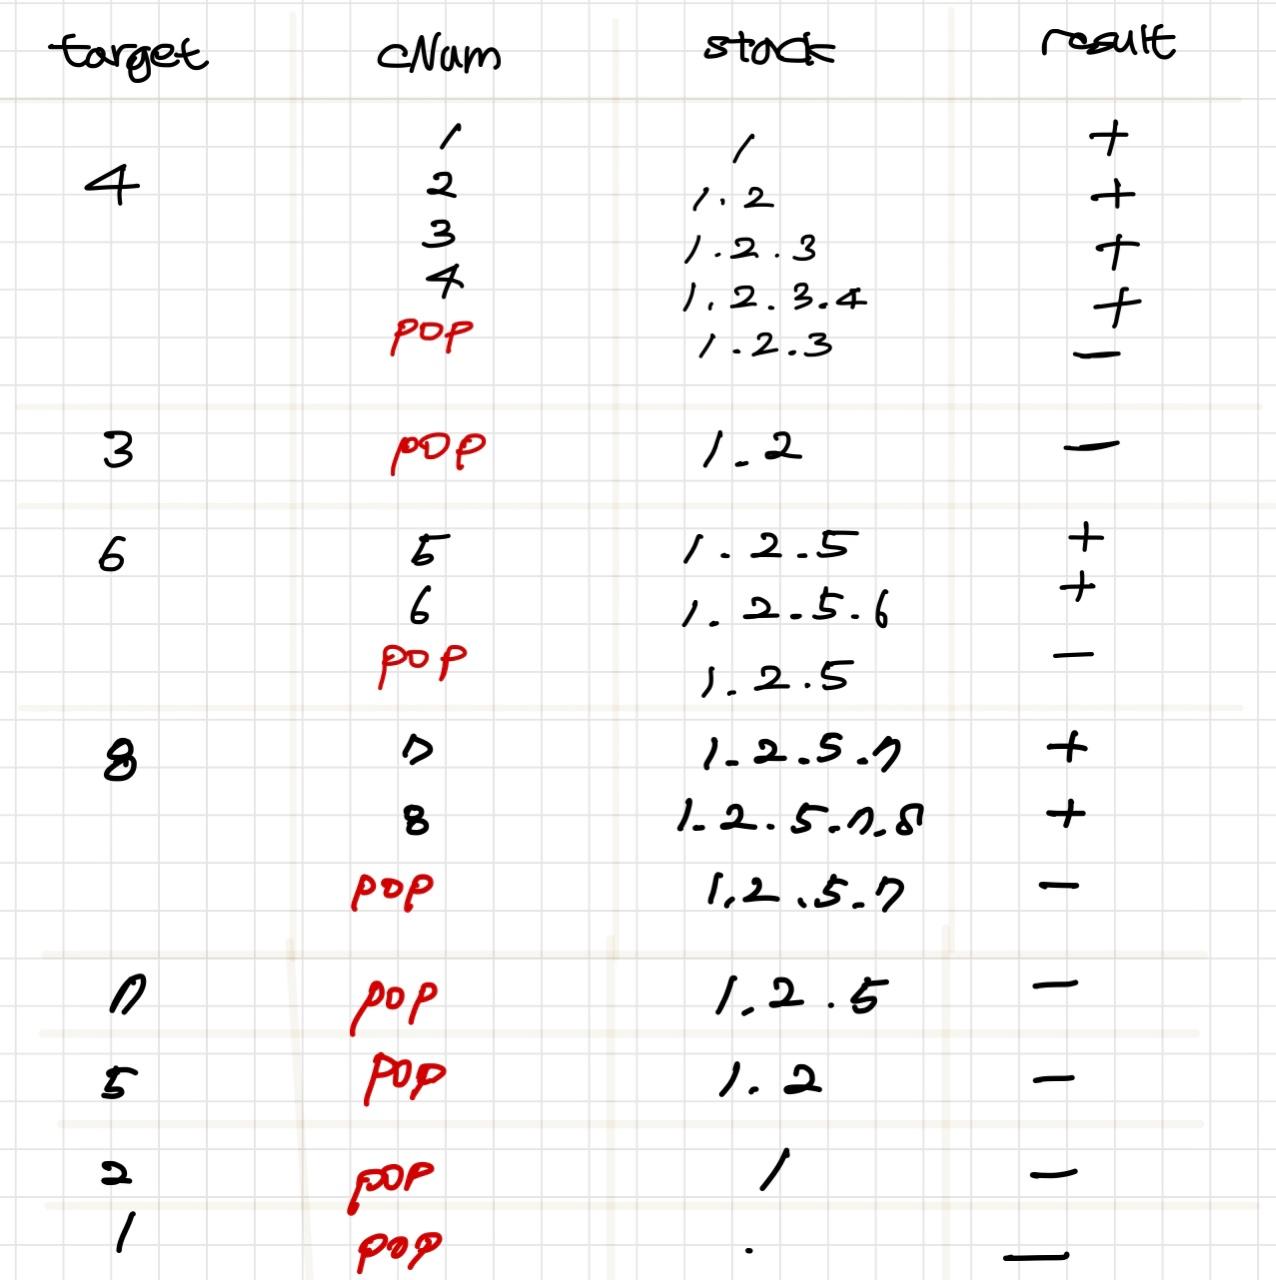 target cNum stack result
1 1 +
4 2 1.2 +
3 1.2.3 +
4 1.2.3.4 +
pop 1.2.3 —
3 pop 1.2 —
6 5 1.2.5 +
6 1.2.5.6 +
pop 1.2.5 —
8 7 1.2.5.7 +
8 1.2.5.7.8 +
pop 1.2.5.7 —
7 pop 1.2.5 —
5 pop 1.2 —
2 pop 1 —
1 pop . —